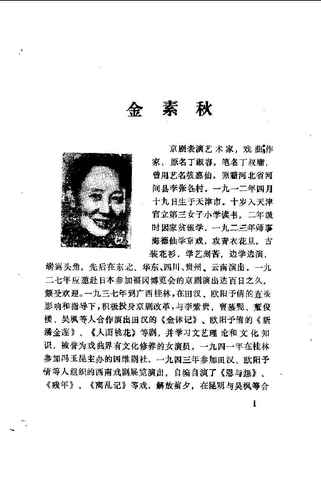 金素秋
京剧表演艺术家，戏曲作
家。原名丁淑容，笔名丁叔
曾用艺名弦惠仙，原籍河北省河
间县李张各村。一九一二年四月
十九日生于天津市。十岁入天津
官立第三女子小学读书，二年级
时因家贫辍学。一九二三年师事
海德仙学京戏，攻青衣花旦、古
装花衫，学艺刻苦，边学边演，
崭露头角。先后在东北、华东、四川、贵州、云南演出。一九
二七年应邀赴日本参加福冈博览会的京剧演出达百日之久，
颇受欢迎。一九三七年到广西桂林，在田汉、欧阳予倩的直接
影响和指导下，积极投身京剧改革，与李紫贵、曹慕髡、董俊
楼、吴枫等人合作演出田汉的《金钵记》、欧阳予倩的《新
潘金莲》、《人面桃花》等剧，并学习文艺理论和文化知
识，被誉为戏曲界有文化修养的女演员。一九四一年在桂林
参加冯玉昆主办的四维剧社，一九四三年参加田汉、欧阳予
倩等人组织的西南戏剧展览演出，自编自演了《恩与怨》、
《残年》、《离乱记》等戏，解放前夕，在昆明与吴枫等合
1